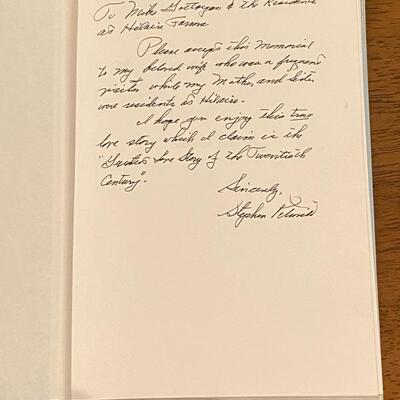 To Mike & the Residents
at Hilaire Farm
Please accept this Memorial
to my beloved wife who was a frequent
visitor while my Mother and Sister
were residents at Hilaire.
I hope you enjoy this true
love story which I claim is the
"Greatest Love Story of the Twentieth
Century".
Sincerely,
Stephen